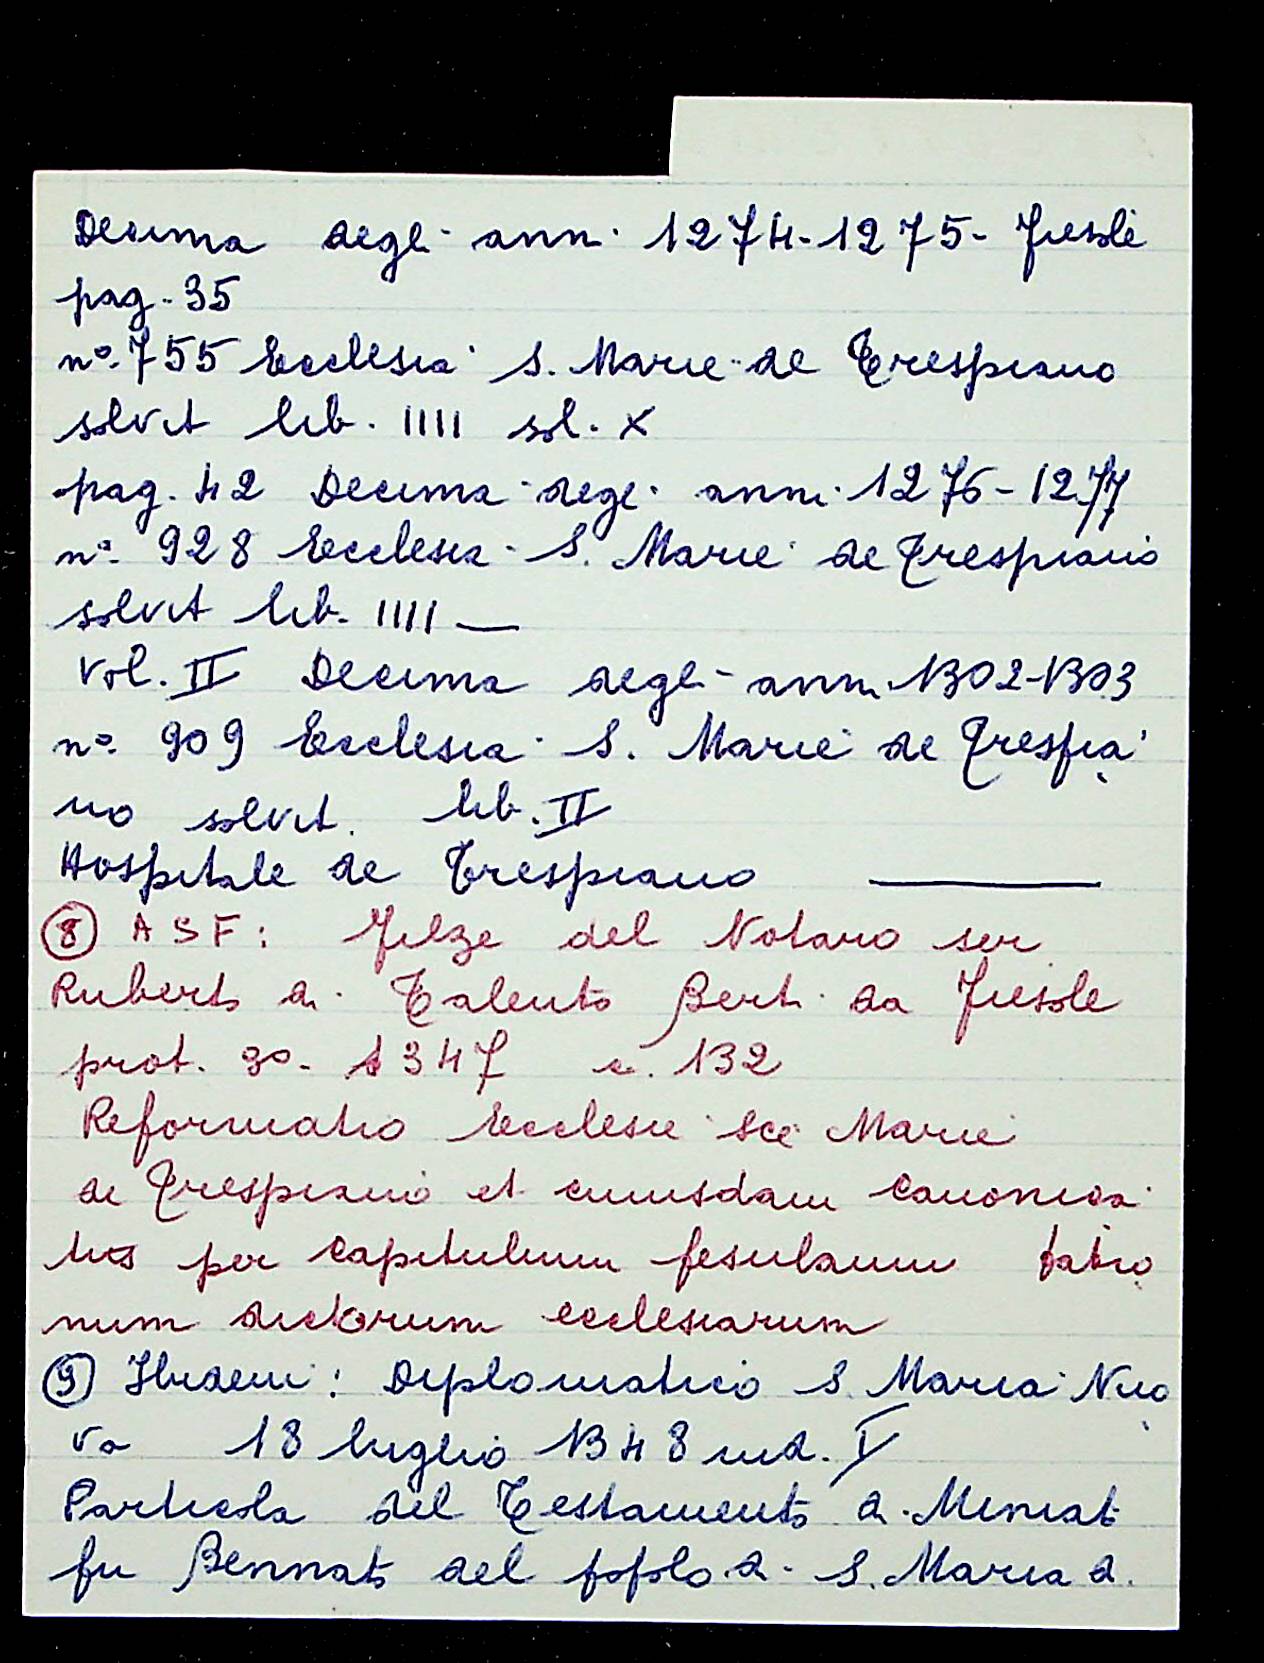 Decima degli anni 1274-1275- Fiesole
pag. 35
n°. 755 Ecclesia S. Marie de Trespiano
solvit lib. IIII sol. X
pag. 42 Decima degli anni 1276-1277
n°. 928 Ecclesia S. Marie de Trespiano
solvit lib. IIII —
Vol. II Decima degli anni 1302-1303
n°. 909 Ecclesia S. Marie de Trespia
no solvit. lib. II
Hospitale de Trespiano ———
⑧ ASF: Filze del Notaro ser
Ruberto di Talento Berti da Fiesole
prot. 3°. 1347 c. 132
Reformatio Ecclesie Sce Marie
de Trespiano et cuiusdam canonica
tus per capitulum fesulanum patro
num dictorum ecclesiarum
⑨ Ibidem: Diplomatico S. Maria Nuo
va 18 luglio 1348 ind. I
Particola del Testamento di Miniato
fu Bennato del popolo di S. Maria a